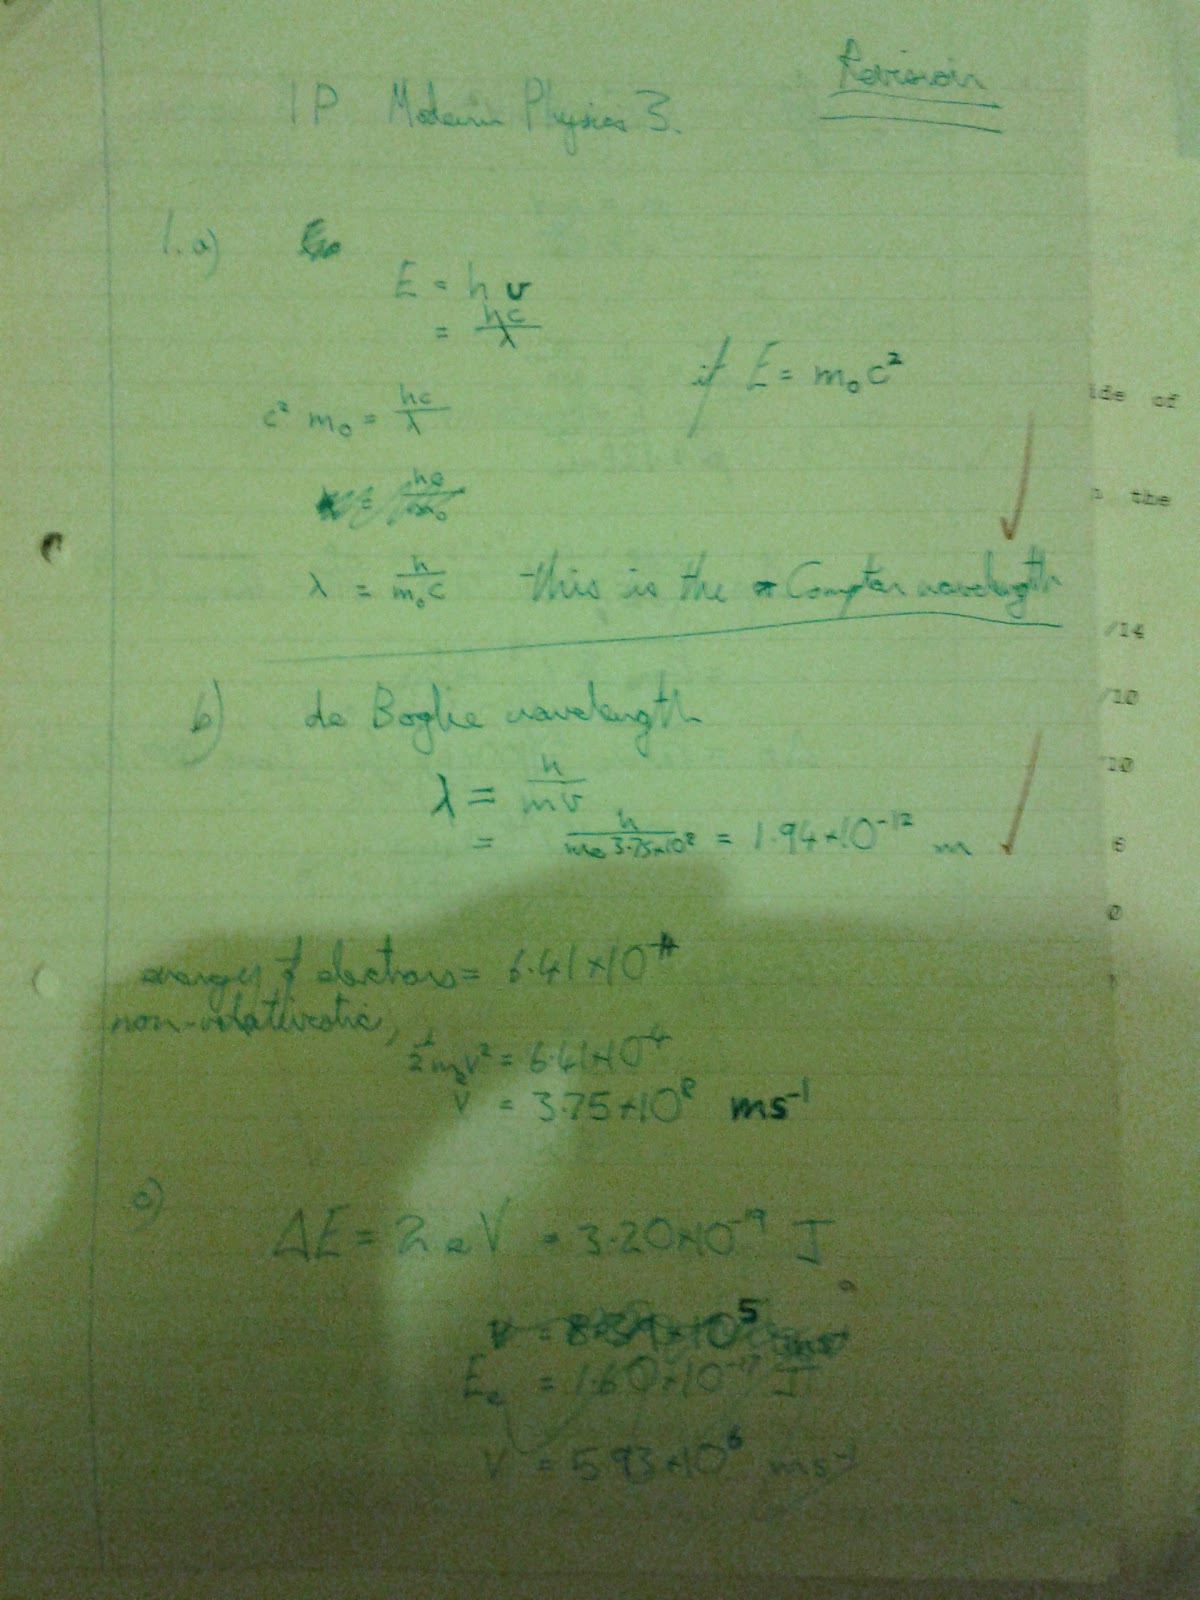 Revision
1P Modern Physics 3.
1. a)
E = hν
= hc/λ
if E = m₀c²
c² m₀ = hc/λ
λ = h/m₀c this is the Compton wavelength
b) de Boglie wavelength
λ = h/mv
= h/mₑ 3.75×10⁸ = 1.94×10⁻¹² m
energy of electrons = 6.41×10
non-relativistic,
½mₑv² = 6.41×10
v = 3.75×10⁸ ms⁻¹
c)
ΔE = 2 eV = 3.20×10⁻¹⁹ J
Eₑ = 1.60×10⁻¹⁷ J
v = 5.93×10⁶ ms⁻¹
ide of
the
/14
/10
/10
6
0